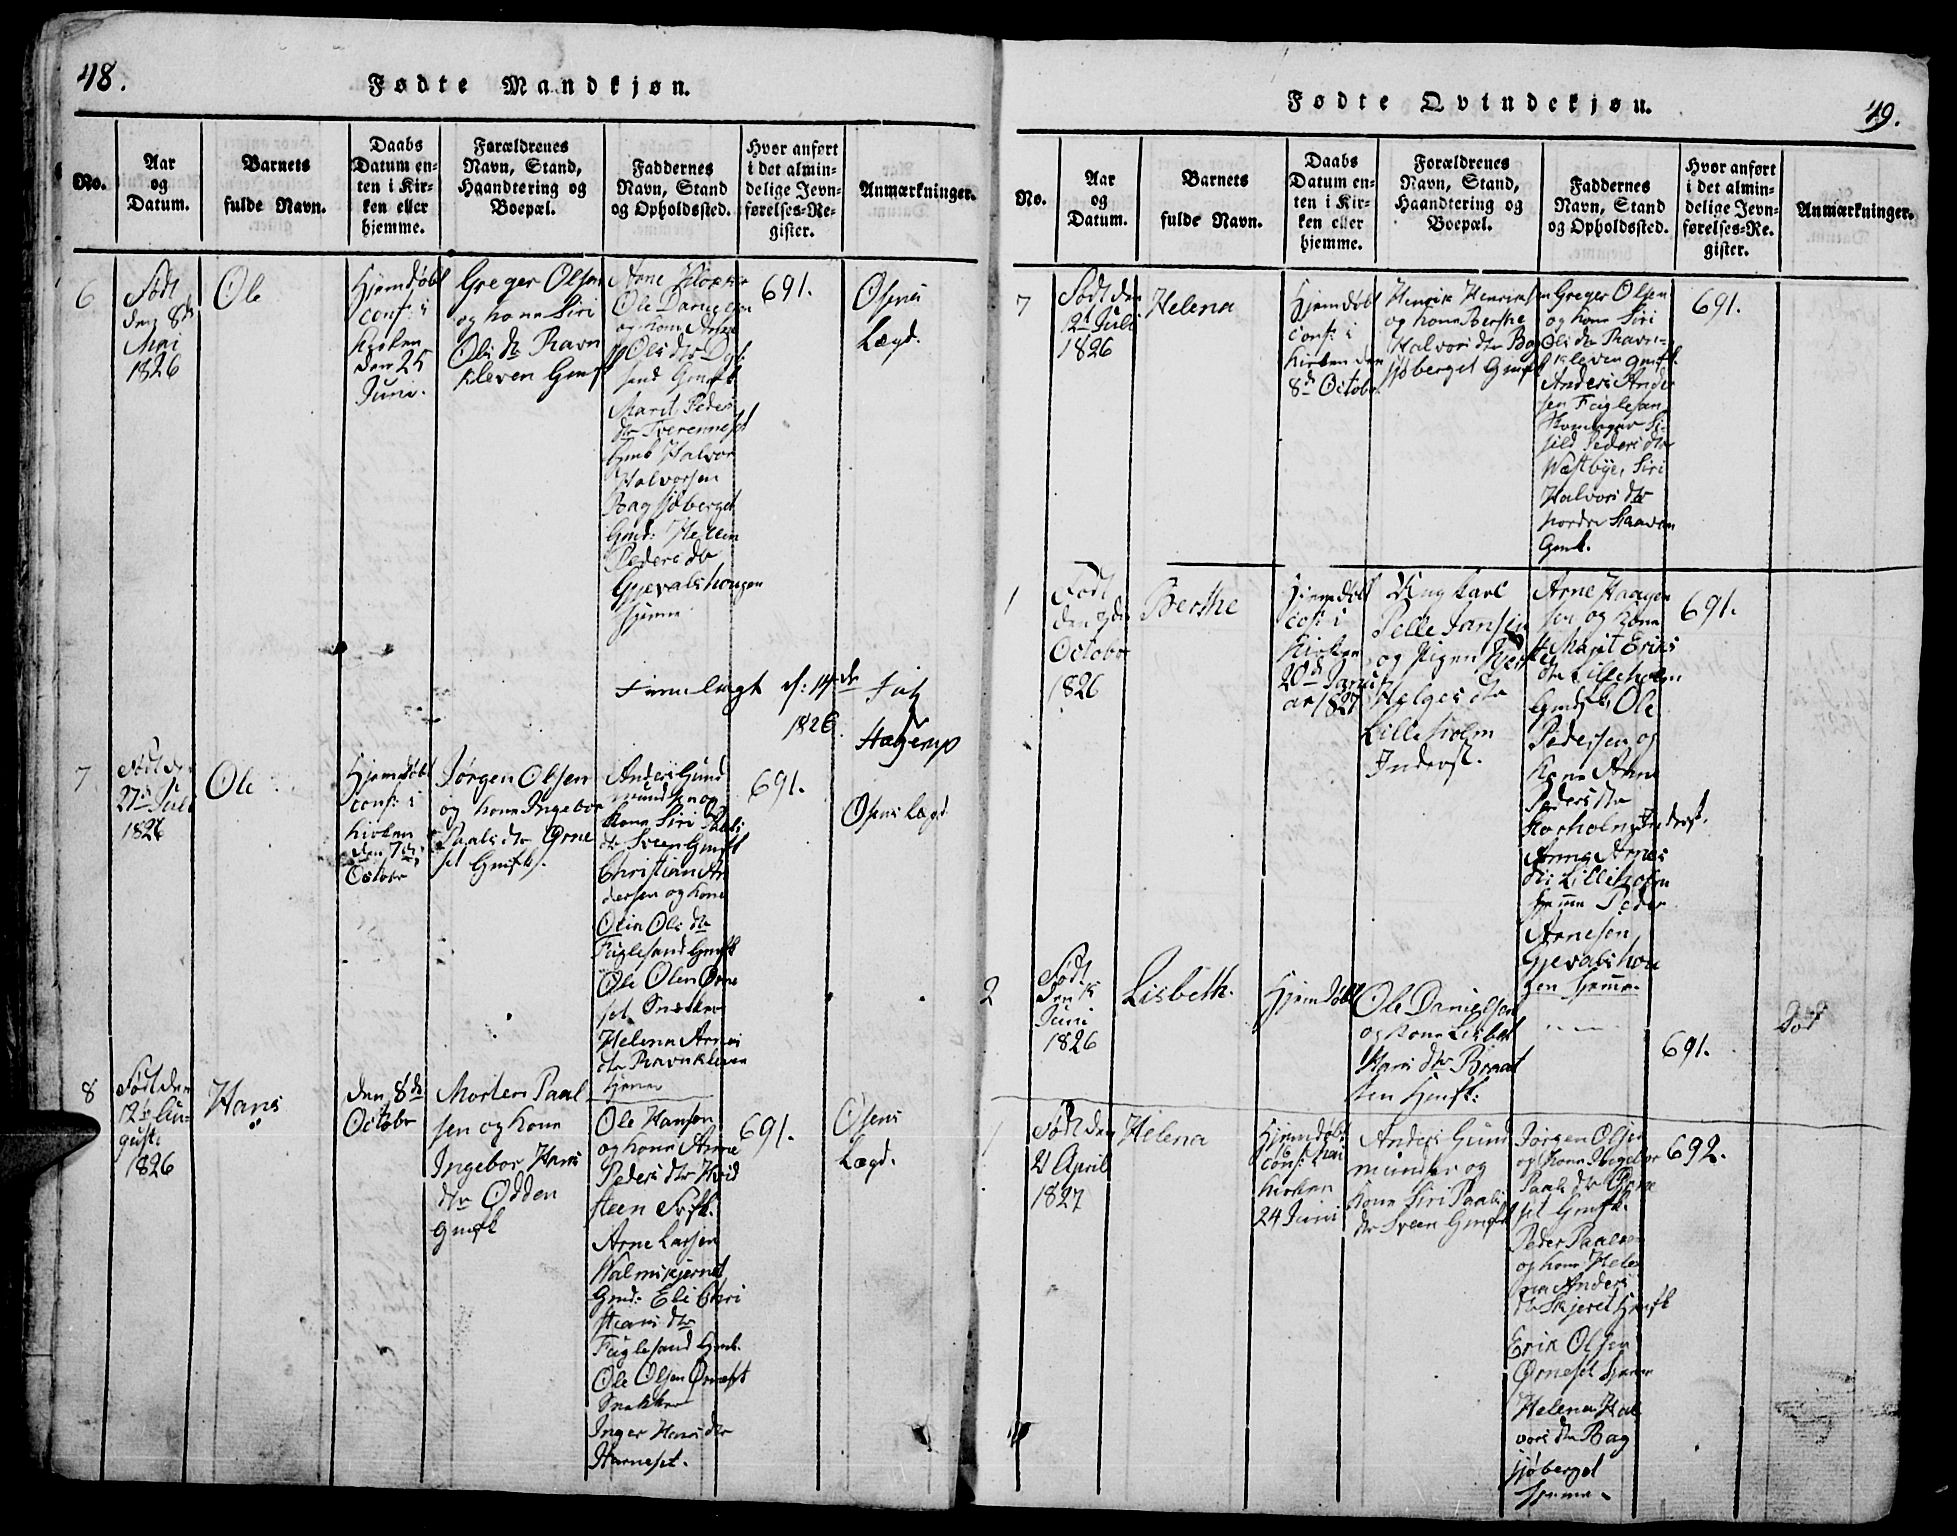 48.
Fødte Mandkjøn.
No.
Aar
og
Datum.
Barnets
fulde Navn.
Daabs
Datum en-
ten i Kir-
ken eller
hjemme.
Forældrenes
Navn, Stand,
Haandtering og
Boepæl.
Faddernes
Navn, Stand
og Opholdssted.
Hvor anført
i det almin-
delige Jevn-
førelses-Re-
gister.
Anmærkninger.
6
Født
den 8de
Mai
1826
Ole
Hjemdøbt
conf: i
kirken
den 25
Juni.
Greger Olsen
og kone Siri
Olsdtr Ravn
kleven Gmfk
Arne
Ole Danielsen
og kone Anne
Olsdtr
Marit Peders
dtr Tverenneset
Gmb Halvor
Halvorsen
Bagsjøberget
Gmd: Helen
Peders dtr
Gjevalshougen
hjemme
691.
Osens
Lægd.
d: 14de Juli
1826.
Hagerup
7
Født den
27de Juli
1826
Ole
Hjemdøbt
conf: i
kirken
den 7de
Octobr
Jørgen Olsen
og kone Ingebor
Paals dtr Ørne
set Gmfk.
Anders Gund
mundsen og
kone Siri Paals
dtr Sveen Gmfk
Christian An
dersen og kone
Olin Ols dtr
Fuglesand Gmfk
Ole Olsen Ørne
set Snekker
Helena Arnes
dtr Ravnkleven
hjemme
691.
Osens Lægd
8
Født den
12te Au-
gusti
1826
Hans
den 8de
Octobr
Morten Paal
sen og kone
Ingebor Hans
dtr Odden
Gmfk
Ole Hansen
og kone Anne
Peders dtr Hvid
steen
Arne Larsen
Walmskjernet
Gmd: Eli Chri
stians dtr
Fuglesand Gmb.
Ole Olsen Ørneset
Snekker
Inger Hans dtr
Harneset.
691.
Osens
Lægd.
Fødte Qvindekjøn.
49.
No.
Aar
og
Datum.
Barnets
fulde Navn.
Daabs
Datum en-
ten i Kir-
ken eller
hjemme.
Forældrenes
Navn, Stand,
Haandtering og
Boepæl.
Faddernes
Navn, Stand
og Opholdssted.
Hvor anført
i det almin-
delige Jevn-
førelses-Re-
gister.
Anmærkninger.
7
Født den
12te Juli
1826
Helena
Hjemdøbt
conf: i
kirken den
8de Octobr.
Henrik Henriksen
og kone Berthe
Halvors dtr Bag
sjøberget Gmfk
Greger Olsen
og kone Siri
Ols dtr Ravn-
kleven Gmfk.
Anders Ander
sen Fuglesan
Peders dtr
Westbye, Siri
Halvors dtr
nordre
Gmb.
691.
1
Født
Octobr
1826
Berthe
Hjemdøbt
conf: i
kirken
20de Janu
ar 1827
Ungkarl
Pelle Jansen
og Pigen
Helges dtr
Lilleholm
Inderst.
Arne Haagen
sen og kone
Marit Eriks
dtr Lilleholm
Gmfk Ole
Pedersen og
kone Anne
Peders dtr
Storholm Inderst.
Anna Arnes
dtr Lilleholm
hjemme Peder
Arnesen
Gjevalshou
gen hjemme.
691.
2
Født
den
Juni
1826
Lisbeth.
Hjemdøbt
Ole Danielsen
og kone Lisbet
Hans dtr Braat
ten Gmfk:
691.
Død
1
Født den
21 April
1827
Helena
Hjemdøbt
16 Mai
conf: i
kirken
24 Juni
Anders Gund
mundsen og
kone Siri Paals
dtr Sveen Gmfk
Jørgen Olsen
og kone Ingebor
Paals dtr Ørne
set Gmfk.
Peder Paalsen
og kone Hele
na Anders
dtr Skjeret Gmfk
Erik Olsen
Ørneset hjemme
Helena Hal
vors dtr Bag
sjøberget
hjemme.
692.